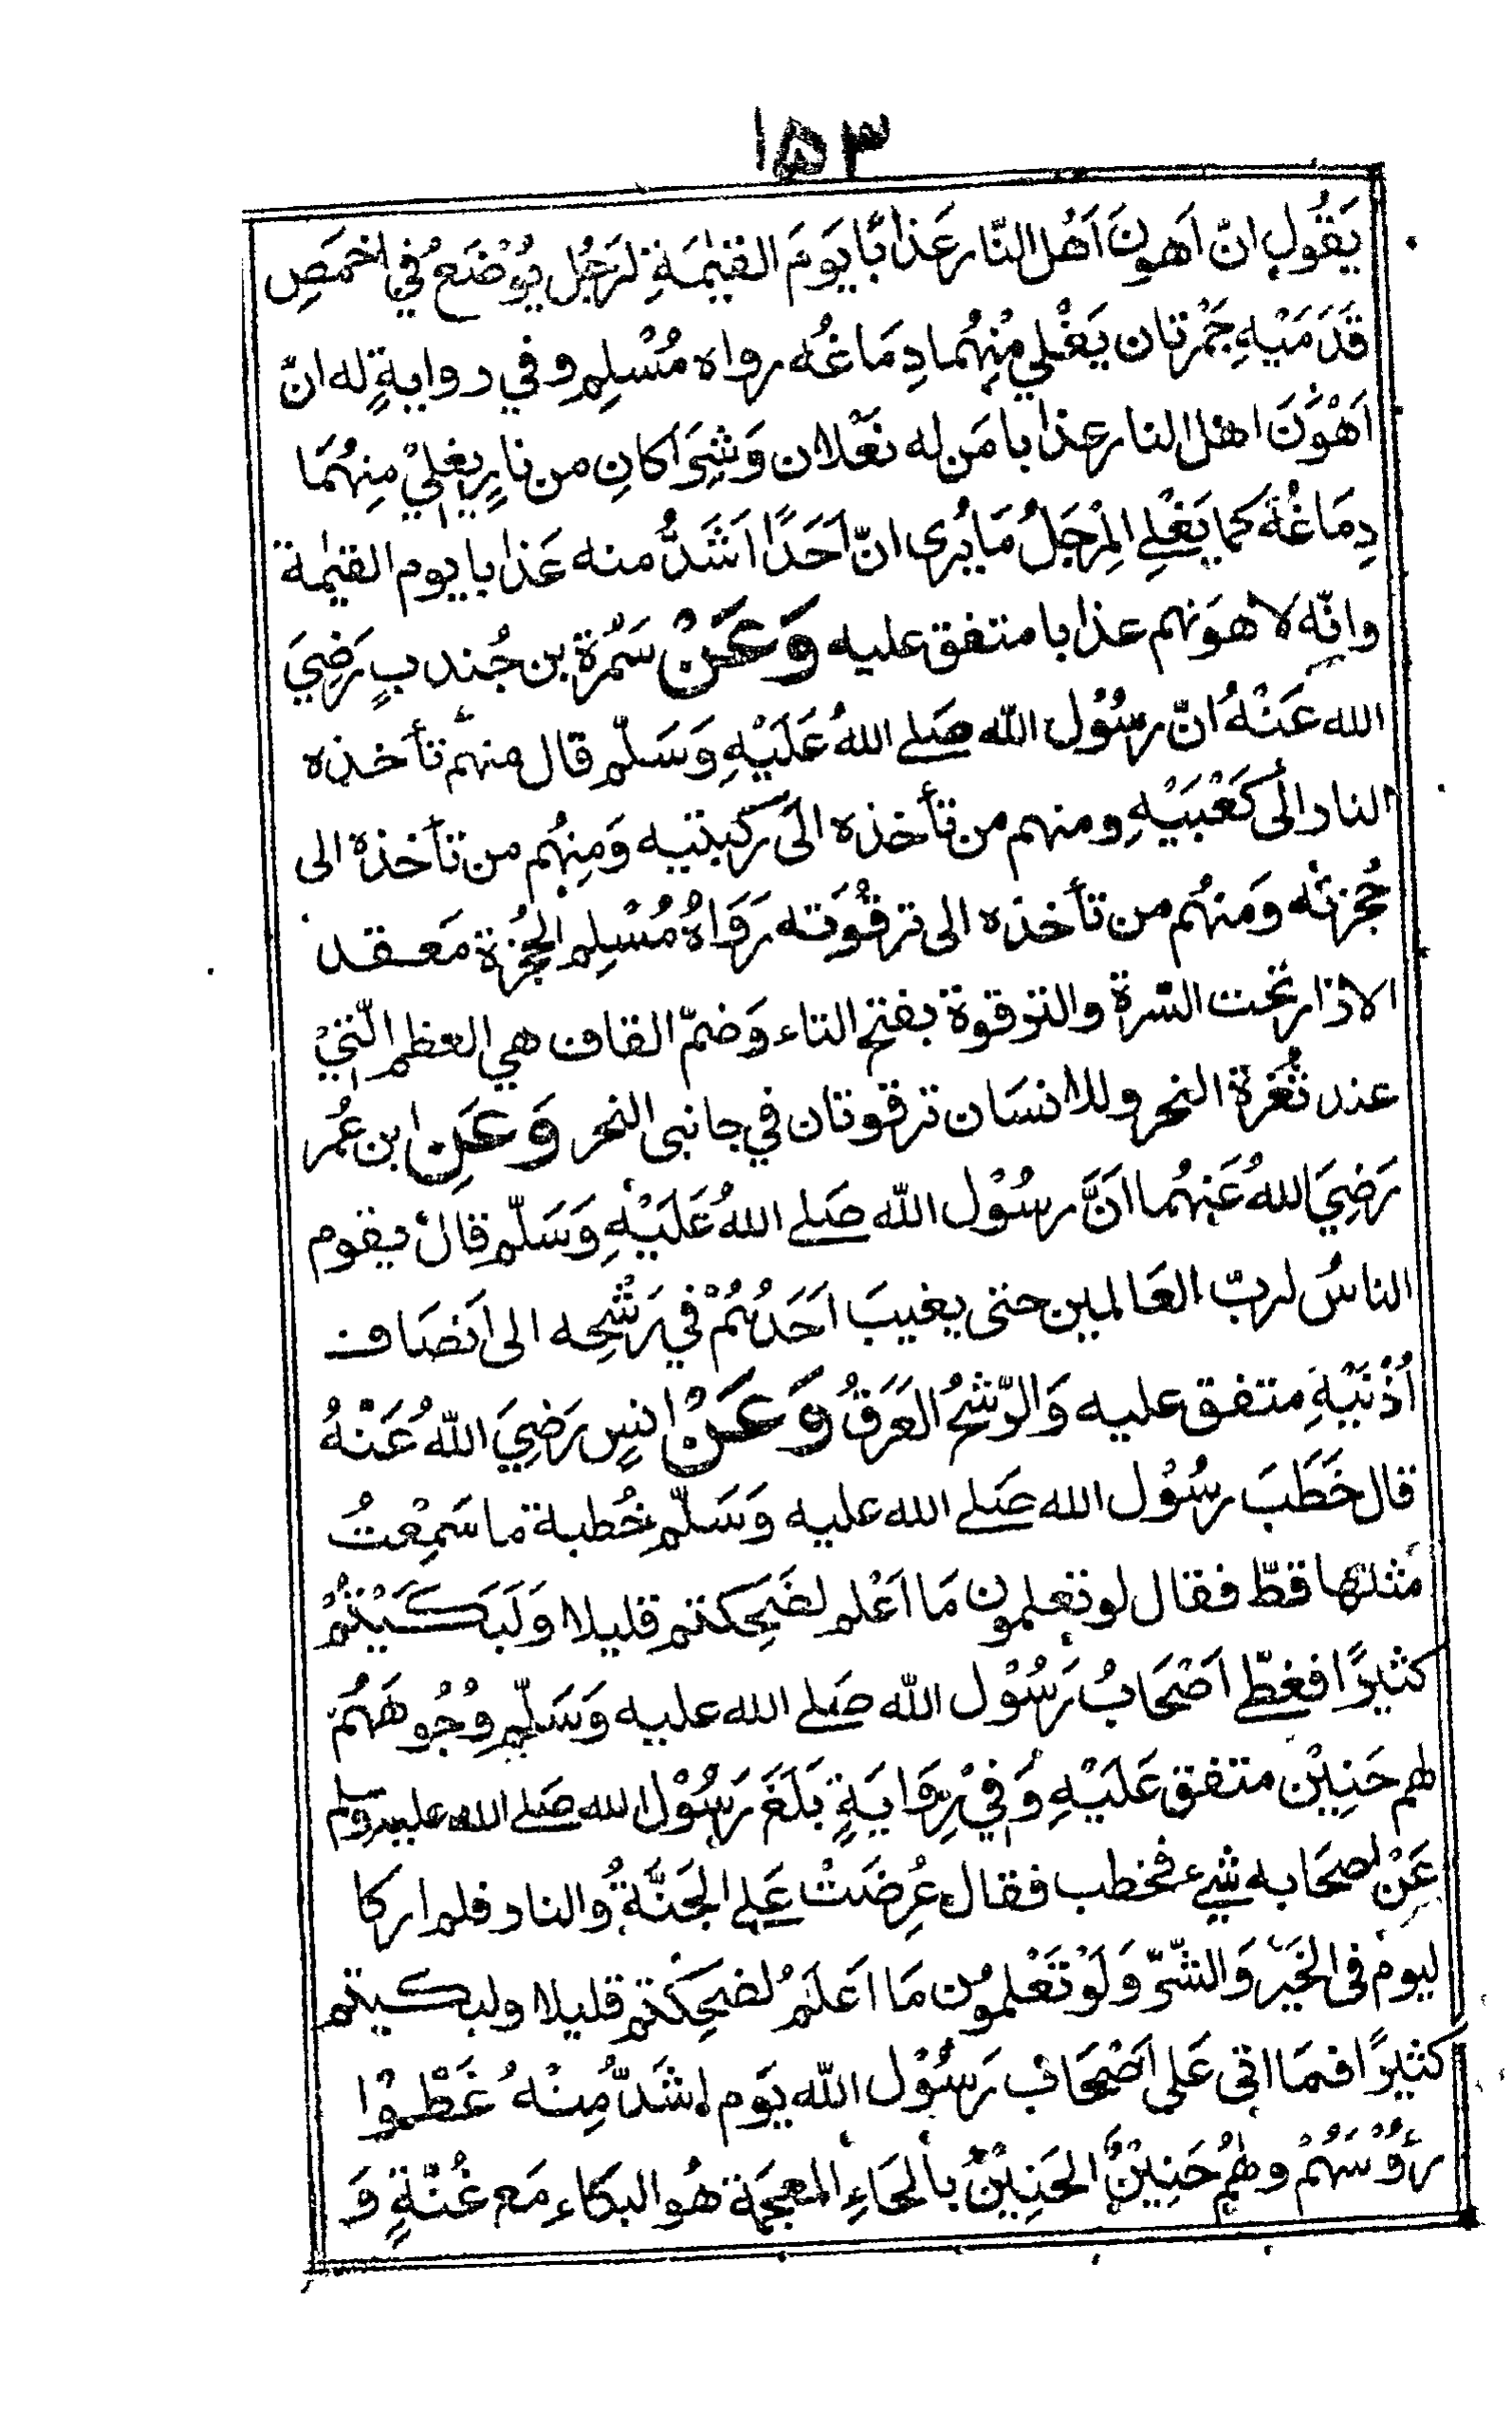 ١۵٣
يَقُولِ انّ اَهونَ اَهُل النّار عَذابًا يَومَ القيٰمَةِ لرَجُل يُوْضَعُ في اخمَصِ
قَدَمَيْهِ جَمْرتان يَغْلي مِنْهُما دِمَاغُه رواه مُسْلِم وفي روايةٍ له انّ
اَهْوَنَ اهل النار عذابا مَن له نَعْلان وَشِرَاكانِ من نارٍ يغلِيْ مِنهُمَا
دِمَاغُهُ كما يَغْلِي المِرْجَلُ مَا يُرى انّ اَحَدًا اَشَدُّ منه عَذابا يوم القيٰمة
وانّه لاهوَنهم عذابا متفق عليه وَعَنْ سَمُرة بن جُندبٍ رَضِيَ
الله عَنْهُ انّ رسُوْل الله صَلى اللهُ عَلَيْهِ وَسَلّم قال منهم تأخذه
النار الى كَعْبَيْهِ ومنهم من تأخذه الى ركبتيه وَمِنهُم من تأخذه الى
حُجزته وَمنهُم من تأخذه الى ترقُوَته رَوَاهُ مُسْلِم الحُجزة مَعقد
الازار تحت السّرة والترقوة بفتح التاء وَضمّ القاف هي العظم الّتيْ
عند ثُغرة النحر وللانسَان ترقوتان في جانبى النحر وَعَنِ ابن عُمر
رَضِيَ اللهُ عَنهُما انَّ رسُوْل الله صَلى اللهُ عَلَيْهِ وَسَلّم قال يقوم
الناسُ لربّ العَالمين حتى يغيبَ اَحَدُهُمْ في رَشْحِه الى اَنصَاف
اُذْنَيْهِ متفق عليه وَالرّشْحُ العَرَقُ وَعَنْ انسٍ رَضِيَ اللهُ عَنْهُ
قال خَطَبَ رسُوْل الله صَلى الله عليه وَسَلّم خُطبة ما سَمِعْتُ
مثلها قطّ فقال لو تعلمون مَا اَعْلم لضَحِكتم قليلا وَلَبَكَيْتُمْ
كثيرًا فغطّى اَصْحَابُ رَسُوْل الله صَلى الله عليه وَسَلّم وُجُوهَهُمْ
لهم خَنِيْن متفق عَلَيْهِ وَفِيْ رِوَايَةٍ بَلَغَ رَسُوْل الله صَلى الله عليه وسلم
عَنْ اصحَابه شيء فخطب فقال عُرِضَتْ عَلى الجَنَّةُ والنار فلم ار كا
ليوم فى الخَيْر وَالشّرّ وَلَوْ تَعْلمون مَا اَعْلَمُ لضحِكتم قليلا ولبكيتم
كثيرًا فمَا اتى عَلى اَصْحَاب رَسُوْل الله يَوم اشَدّ مِنْهُ غَطّوْا
رؤُسَهُمْ ولهُمْ خَنِيْنٌ الخَنِيْنُ بالخاءِ المعجمة هُو البكاء مَع غُنّةٍ وَ